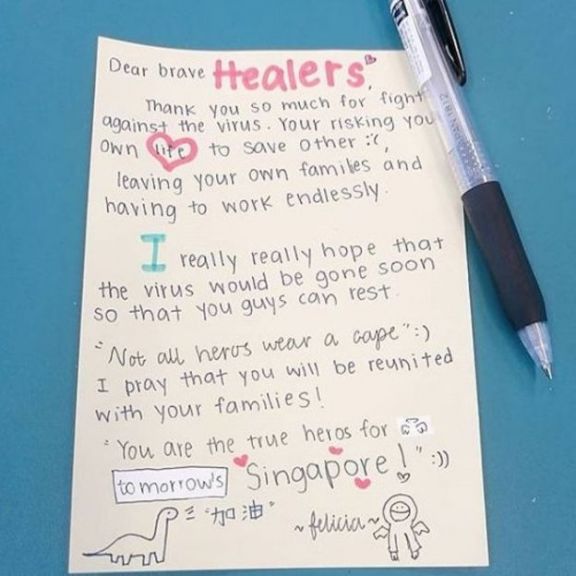 Dear brave Healers,
Thank you so much for fight
against the virus. Your risking you
own life to save other :'(,
leaving your own familes and
having to work endlessly.
I really really hope that
the virus would be gone soon
so that you guys can rest.
"Not all heros wear a cape" :)
I pray that you will be reunited
with your families!
"You are the true heros for
tomorrow's Singapore!" :))
"加油"
~felicia~